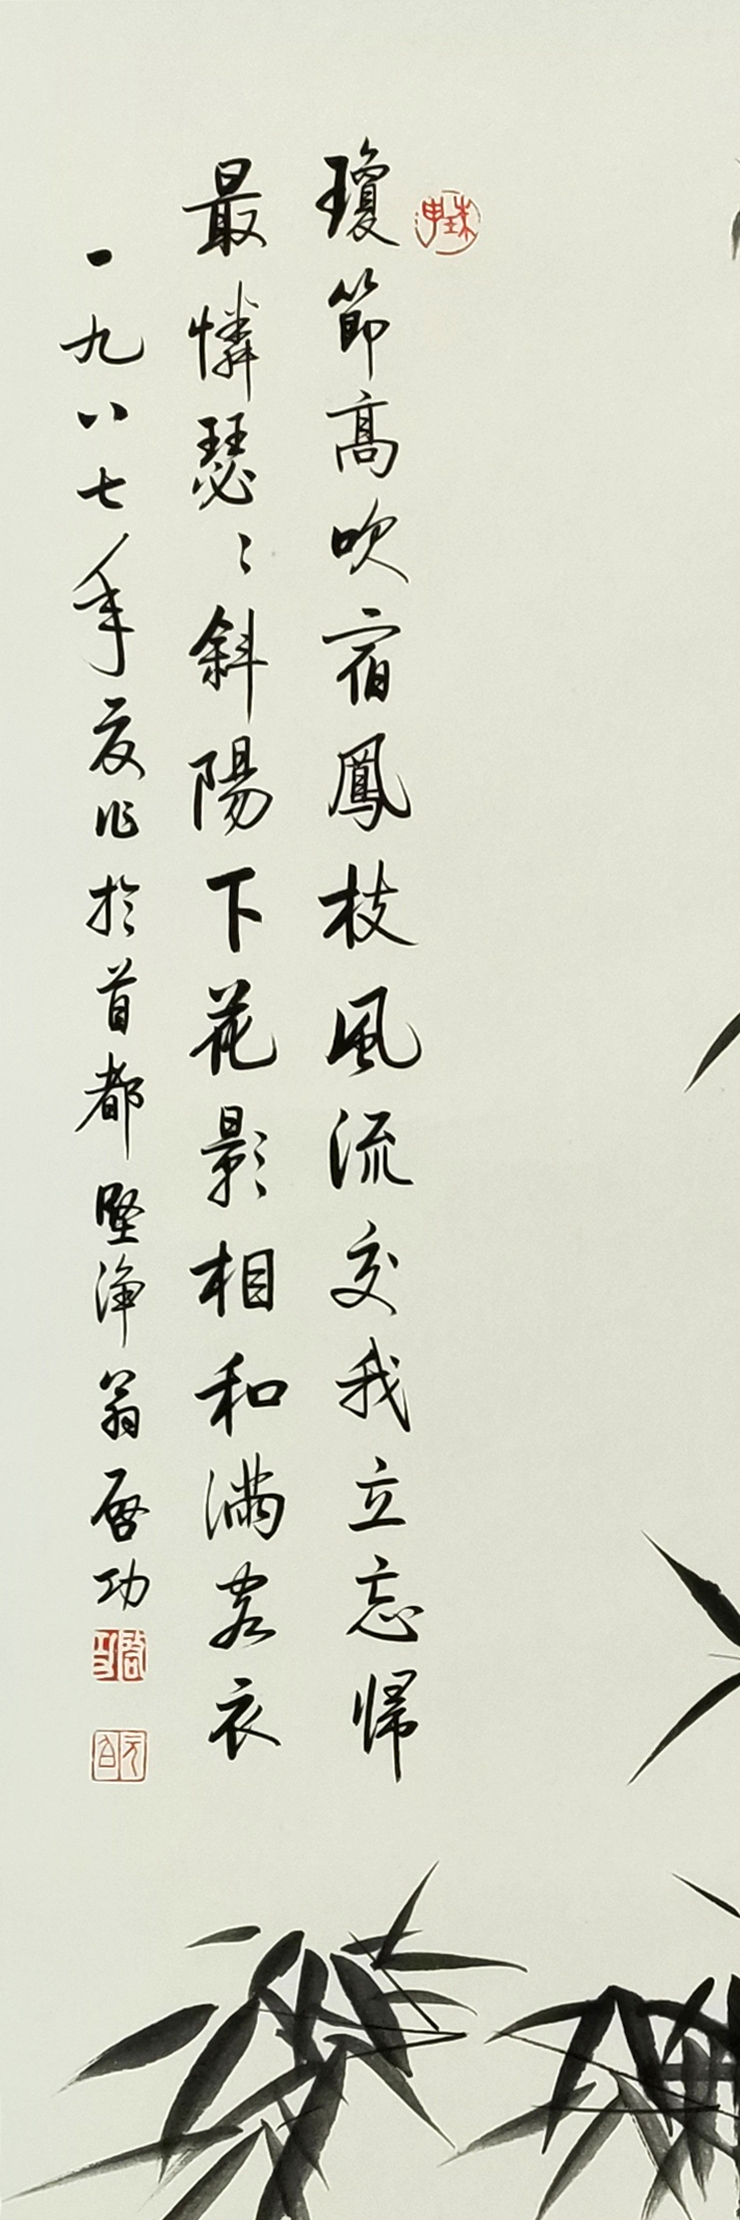 瓊節高吹宿鳳枝風流交我立忘歸
最憐瑟〻斜陽下花影相和滿客衣
一九八七年夏作於首都堅淨翁啓功
啟功
元白